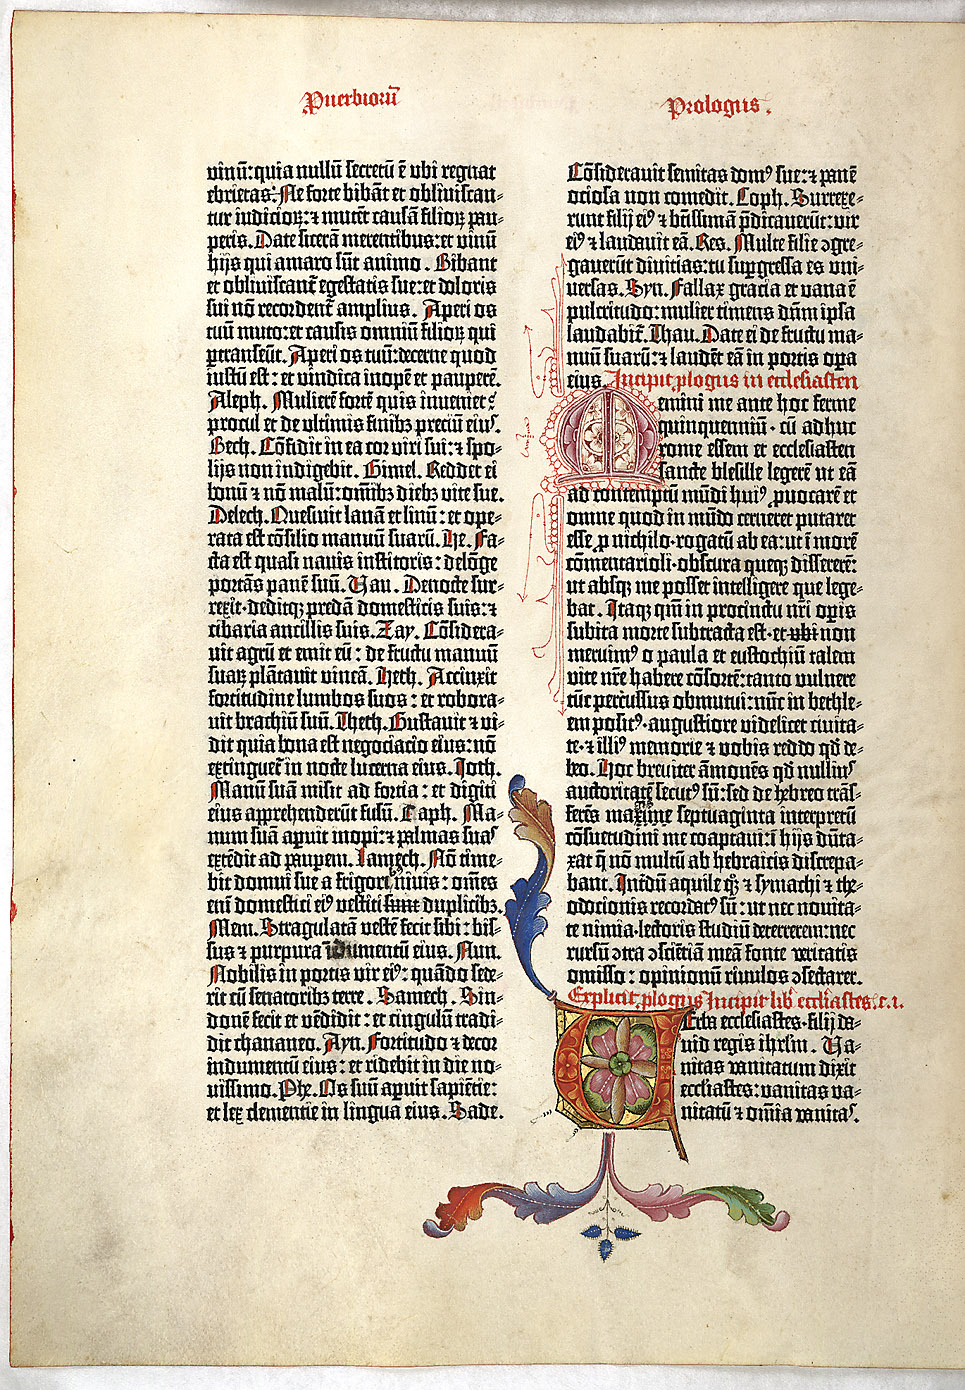 Puerbiorū
vinū: quia nullū secretū ē vbi regnat
ebrietas: Ne forte bibāt et obliuiscan-
tur iudicioꝝ: ⁊ mutēt causā filioꝝ pau-
peris. Date sicerā merentibus: et vinū
hijs qui amaro sūt animo. Bibant
et obliuiscant᷑ egestatis sue: et doloris
sui nō recordent᷑ amplius. Aperi os
tuū muto: et causis omniū filioꝝ qui
ꝑtranseūt. Aperi os tuū: decerne quod
iustū est: et vindica inopē et pauperē.
Aleph. Mulierē fortē quis inueniet?
procul et de vltimis finibꝫ preciū eiuˢ.
Bech. Cōfidit in ea cor viri sui: ⁊ spo-
lijs non indigebit. Gimel. Reddet ei
bonū ⁊ nō malū: omībꝫ diebꝫ vite sue.
Delech. Quesiuit lanā et linū: et ope-
rata est cōsilio manuū suarū. He. Fa-
cta est quasi nauis institoris: de lōge
portās panē suū. Vau. De nocte sur-
rexit. deditqꝫ predā domesticis suis: ⁊
cibaria ancillis suis. Zay. Cōsidera-
uit agrū et emit eū: de fructu manuū
suaꝝ plātauit vineā. Heth. Accinxit
fortitudine lumbos suos: et robora-
uit brachiū suū. Theth. Gustauit ⁊ vi-
dit quia bona est negociacio eius: nō
extinguet᷑ in nocte lucerna eius. Joth.
Manū suā misit ad fortia: et digiti
eius apprehenderūt fusū. Caph. Ma-
num suā aꝑuit inopi: ⁊ palmas suaˢ
extēdit ad pauperem. Lamech. Nō time-
bit domui sue a frigoribꝫ niuis: omēs
enī domestici eiꝰ vestiti sunt duplicibꝫ.
Mem. Stragulatā vestē fecit sibi: bis-
sus ⁊ purpura īdumentū eius. Nun.
Nobilis in portis vir eiꝰ: quādo sede-
rit cū senatoribꝫ terre. Samech. Sin-
donē fecit et vēdidit: et cingulū tradi-
dit chananeo. Ayn. Fortitudo ⁊ decor
indumentū eius: et ridebit in die no-
uissimo. Phe. Os suū aꝑuit sapiētie:
et lex clementie in lingua eius. Sade.
Prologus.
Cōsiderauit semitas domꝰ sue: ⁊ panē
ociosa non comedit. Coph. Surrexe-
runt filij eiꝰ ⁊ bt̄issimā p̄dicauerūt: vir
eiꝰ ⁊ laudauit eā. Res. Multe filie ꝯgre-
gauerūt diuitias: tu suꝑgressa es vni-
uersas. Syn. Fallax gracia et vana ē
pulcritudo: mulier timens dn̄m ipsa
laudabit᷑. Thau. Date ei de fructu ma-
nuū suarū: ⁊ laudēt eā in portis oꝑa
eius. Incipit ꝓlogus in ecclesiasten
Memini me ante hoc ferme
quinquenniū. cū adhuc
rome essem et ecclesiasten
sancte blesille legerē ut eā
ad contemptū mūdi huiꝰ ꝓuocarē et
omne quod in mūdo cerneret putaret
esse ꝓ nichilo. rogatū ab ea: ut ī morē
cōmentarioli. obscura queqꝫ dissererē:
ut absqꝫ me posset intelligere que lege-
bat. Itaqꝫ qm̄ in procinctu nr̄i oꝑis
subita morte subtracta est. et vbi non
meruimꝰ o paula et eustochiū talem
vite nr̄e habere cōsortē: tanto vulnere
tūc percussus obmutui: nūc in bethle-
em positꝰ. augustiore videlicet ciuita-
te. ⁊ illiꝰ memorie ⁊ vobis reddo qd̄ de-
beo. Hoc breuiter āmonēs qd̄ nulliuˢ
auctoritatē secutꝰ sū: sed de hebreo trās-
ferēs maxime septuaginta interpretū
cōsuetudini me coaptaui: ī hijs dūta-
xat q̄ nō multū ab hebraicis discrepa-
bant. Interdū aquile qꝫ ⁊ symachi ⁊ the-
odocionis recordatꝰ sū: ut nec nouita-
te nimia. lectoris studiū deterrerem: nec
rursū ꝯtra ꝯsciētiā meā fonte veritatis
omisso: opinionū riuulos ꝯsectarer.
Explicit ꝓlogus Incipit lib᷑ eccl̄iastes. c. i.
Verba ecclesiastes. filij da-
uid regis ihrlm̄. Va-
nitas vanitatum dixit
ecclesiastes: vanitas va-
nitatū ⁊ omīa vanitaˢ.